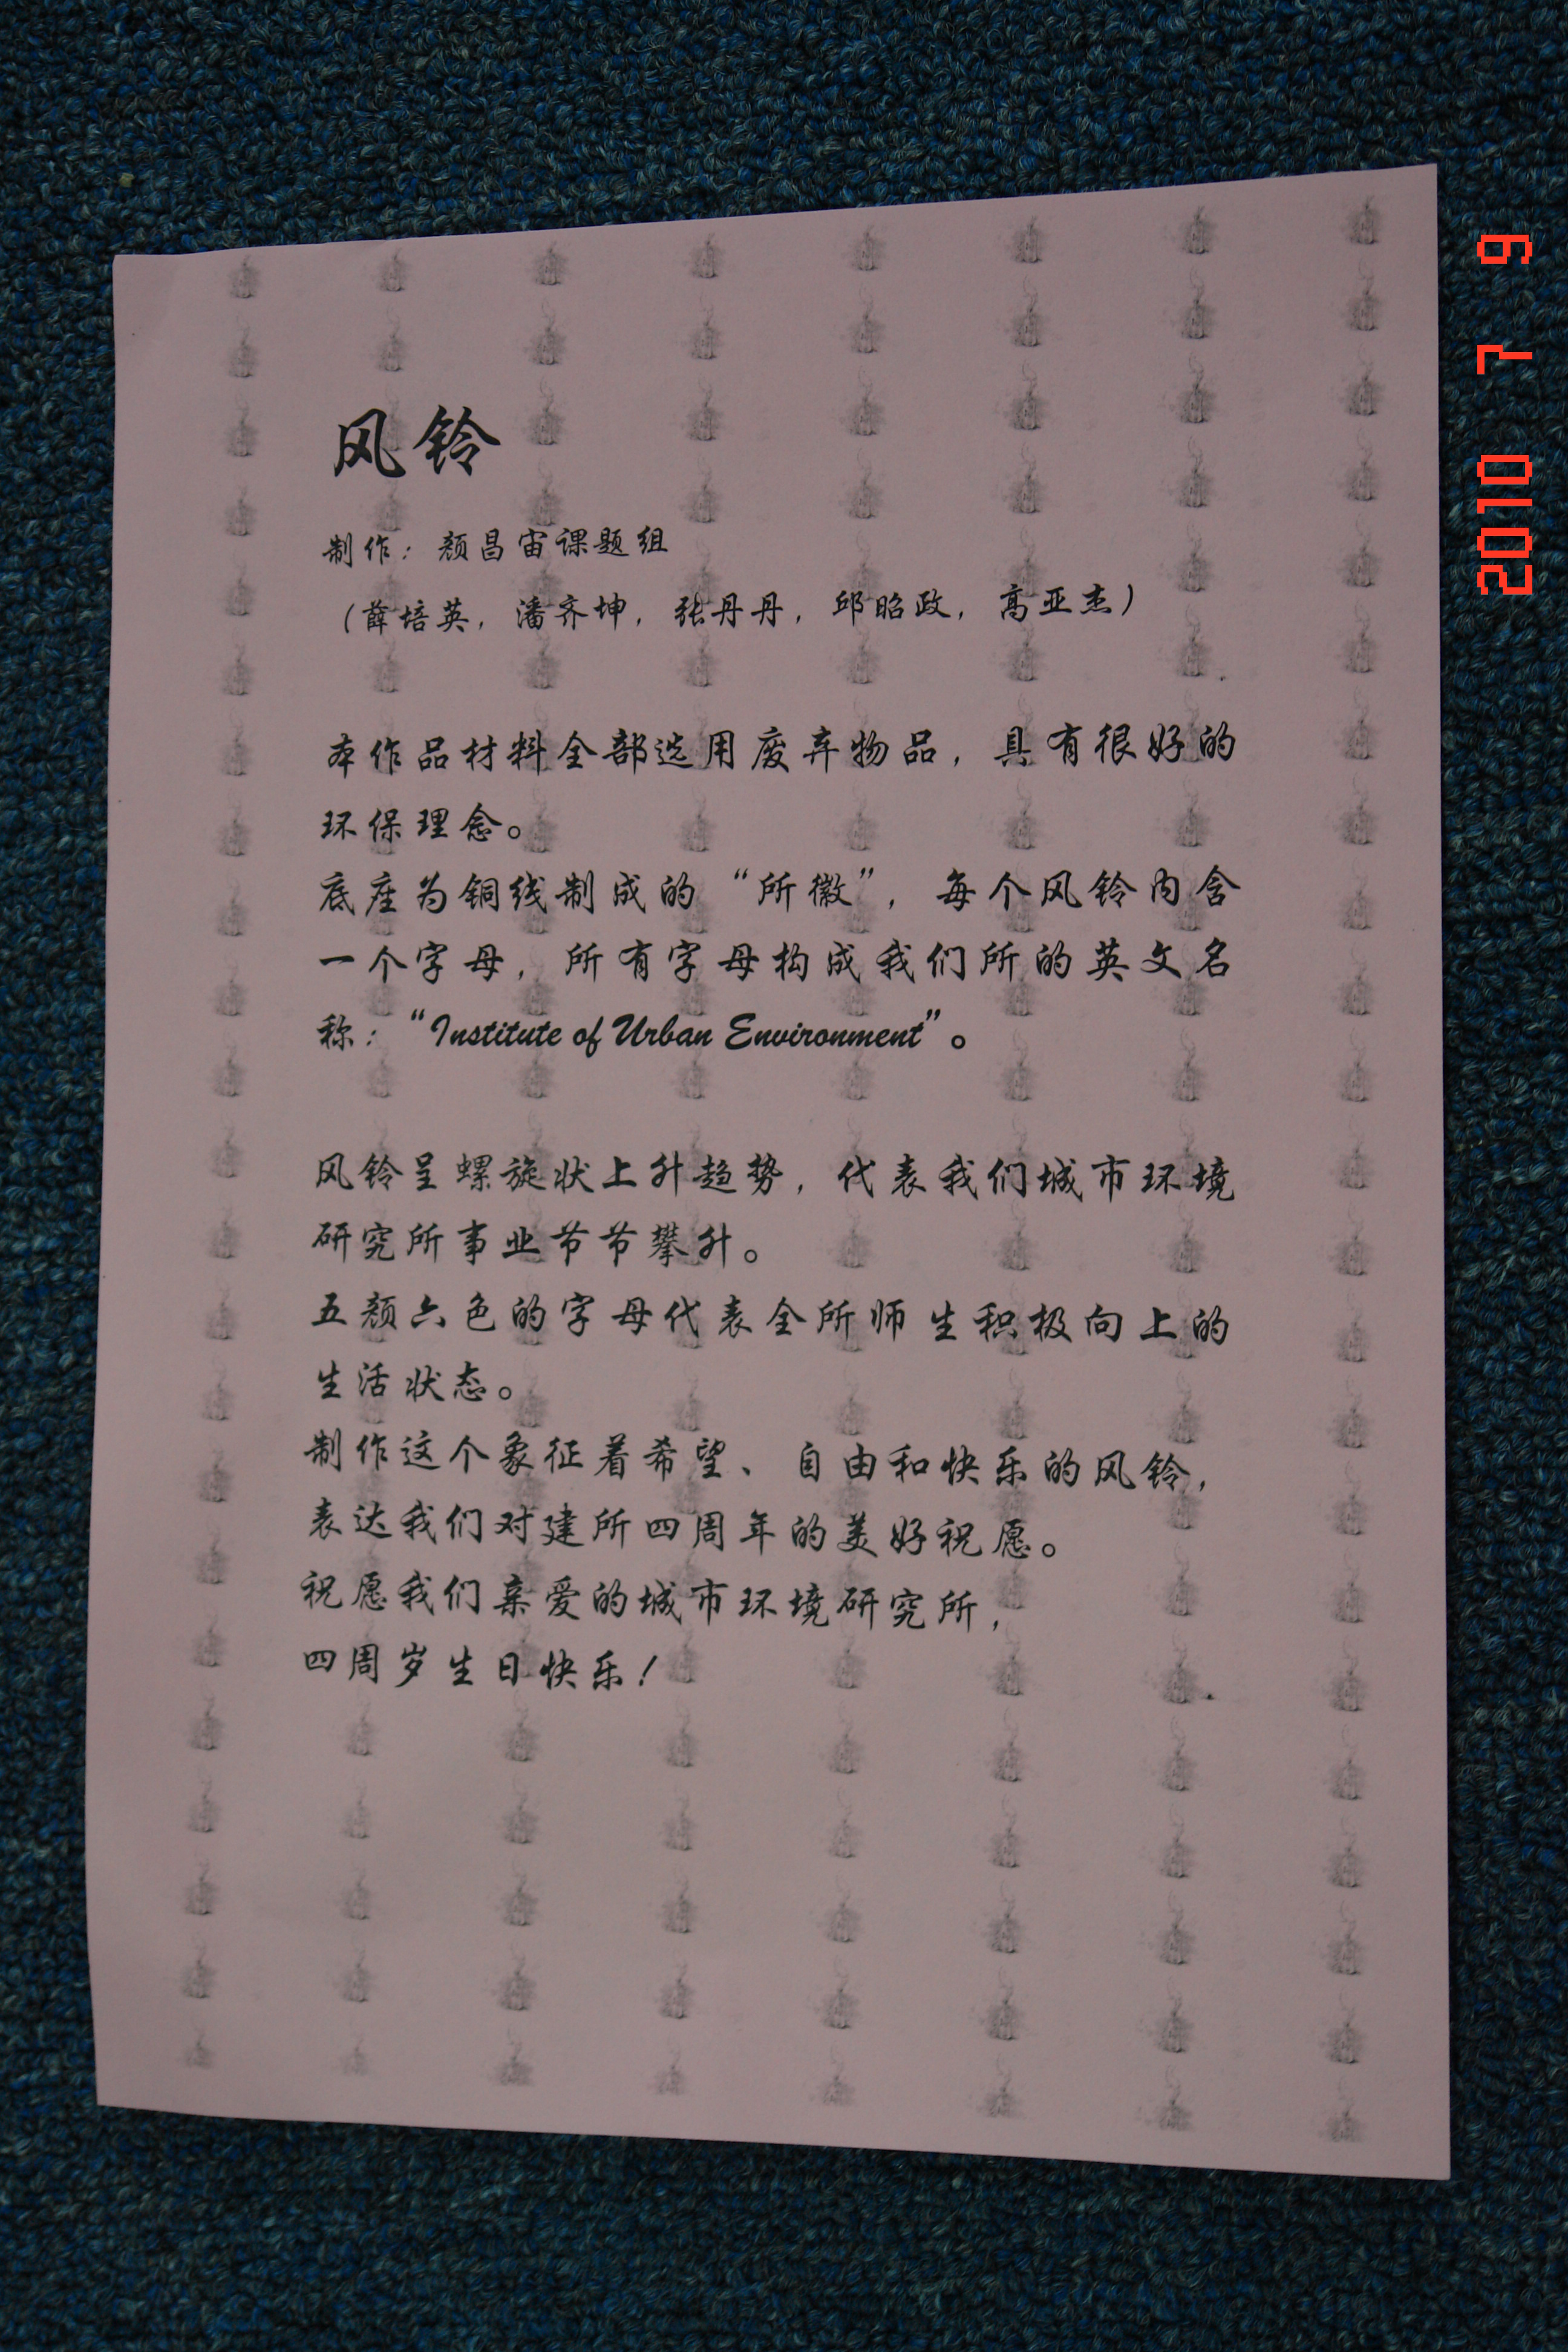 风铃
制作：颜昌宙课题组
（薛培英，潘齐坤，张丹丹，邱昭政，高亚杰）
本作品材料全部选用废弃物品，具有很好的
环保理念。
底座为铜线制成的“所徽”，每个风铃内含
一个字母，所有字母构成我们所的英文名
称：“Institute of Urban Environment”。
风铃呈螺旋状上升趋势，代表我们城市环境
研究所事业节节攀升。
五颜六色的字母代表全所师生积极向上的
生活状态。
制作这个象征着希望、自由和快乐的风铃，
表达我们对建所四周年的美好祝愿。
祝愿我们亲爱的城市环境研究所，
四周岁生日快乐！
2010 7 9